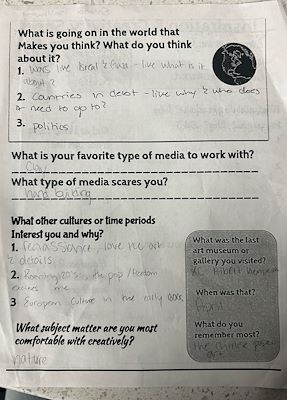 What is going on in the world that
Makes you think? What do you think
about it?
1. Wars like Isreal & Gaza - like what is it
about?
2. Countries in debt - like why & who does
it need to go to?
3. politics
What is your favorite type of media to work with?
Clay
What type of media scares you?
hand building
What other cultures or time periods
Interest you and why?
1. renaissance, love the art
& details
2. Roaring 20's, the pop / freedom
excites me
3 European Culture in the early
What subject matter are you most
comfortable with creatively?
nature
What was the last
art museum or
gallery you visited?
KC Albert
When was that?
What do you
remember most?
the chinese
art